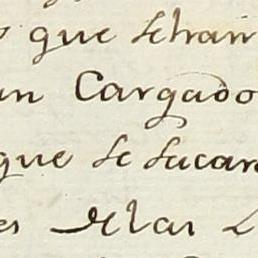 que se han
an Cargado
que se sacar
es de las